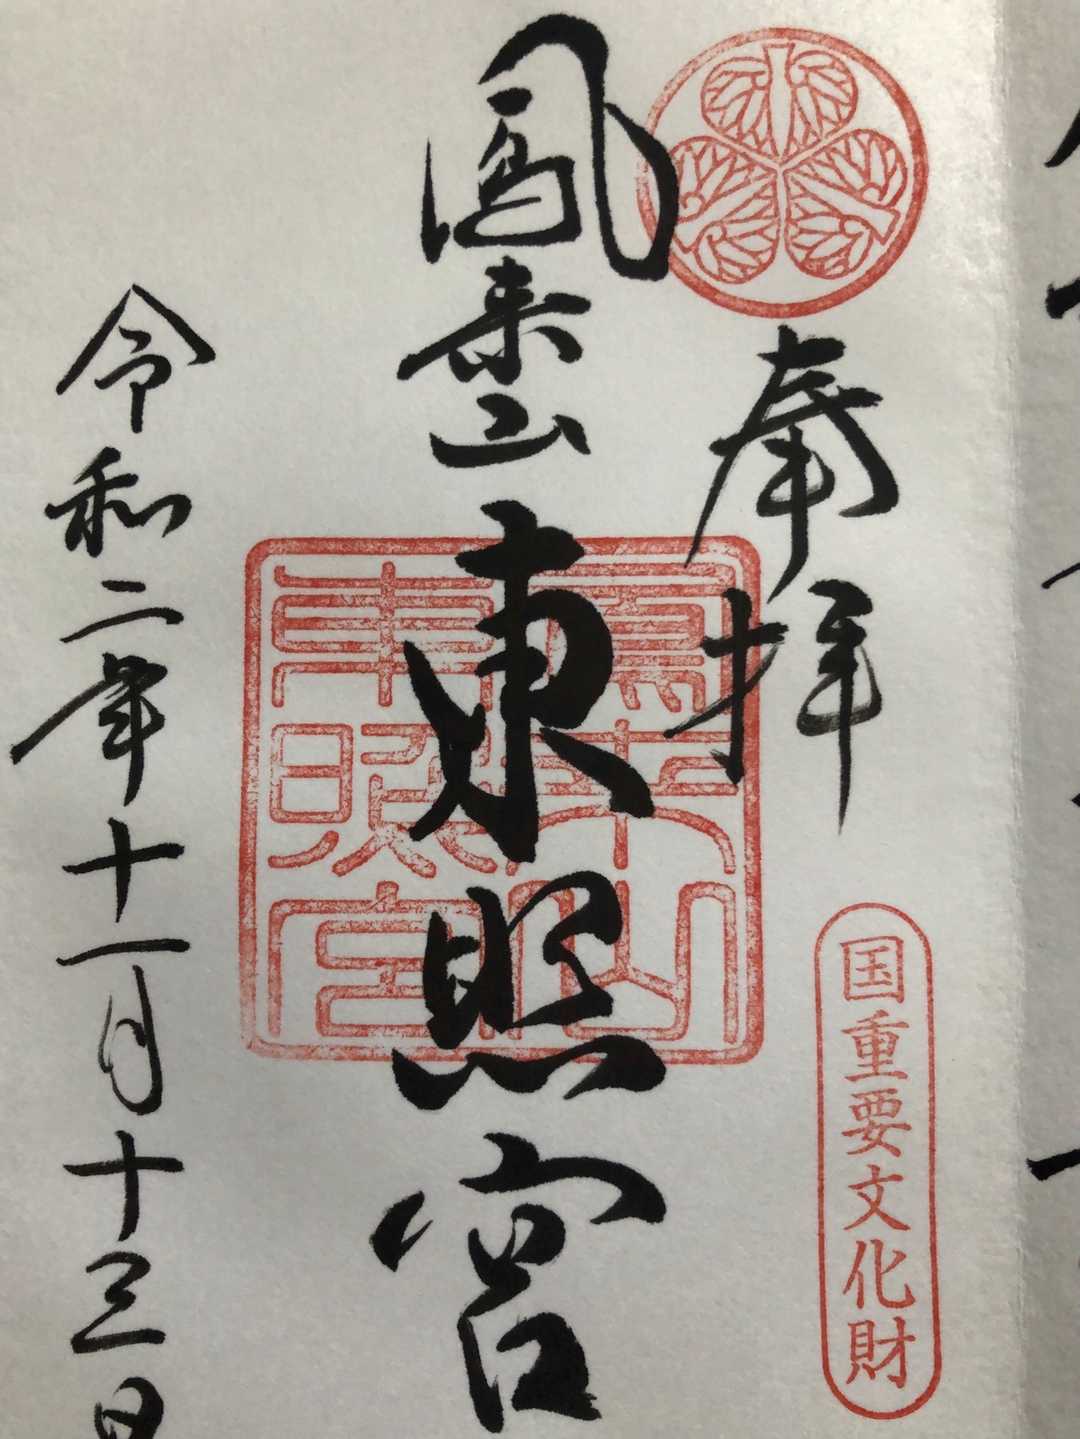 奉拝
国重要文化財
鳳来山東照宮
鳳来山
東照宮
令和二年十一月十三日